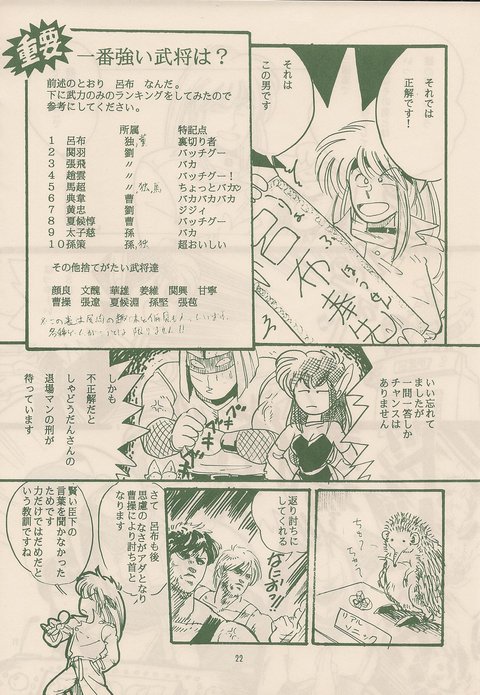 重要
一番強い武将は？
前述のとおり　呂布　なんだ。
下に武力のみのランキングをしてみたので
参考にしてください。
所属　特記点
1　呂布　独　裏切り者
2　関羽　劉　バッチグー
3　張飛　〃　バカ
4　趙雲　〃　バッチグー！
5　馬超　〃　ちょっとバカ
6　典韋　曹　バカバカバカ
7　黄忠　劉　ジジィ
8　夏候惇　曹　バッチグー
9　太子慈　孫　バカ
10　孫策　孫　超おいしい
その他捨てがたい武将達
顔良　文醜　華雄　姜維　関興　甘寧
曹操　張遼　夏候淵　孫堅　張苞
それでは
正解です！
それは
この男です
呂布奉先
いい忘れて
ましたが
一問一答しか
チャンスは
ありません
しかも
不正解だと
しゃどうだんさんの
退場マンの刑が
待っています
リアル
ソニック
返り討ちに
してくれる
なにおっ!!
さて　呂布も後
思慮のなさがアダとなり
曹操により討ち首と
なります
賢い臣下の
言葉を聞かなかった
ためです
力だけではだめだと
いう教訓ですね
22